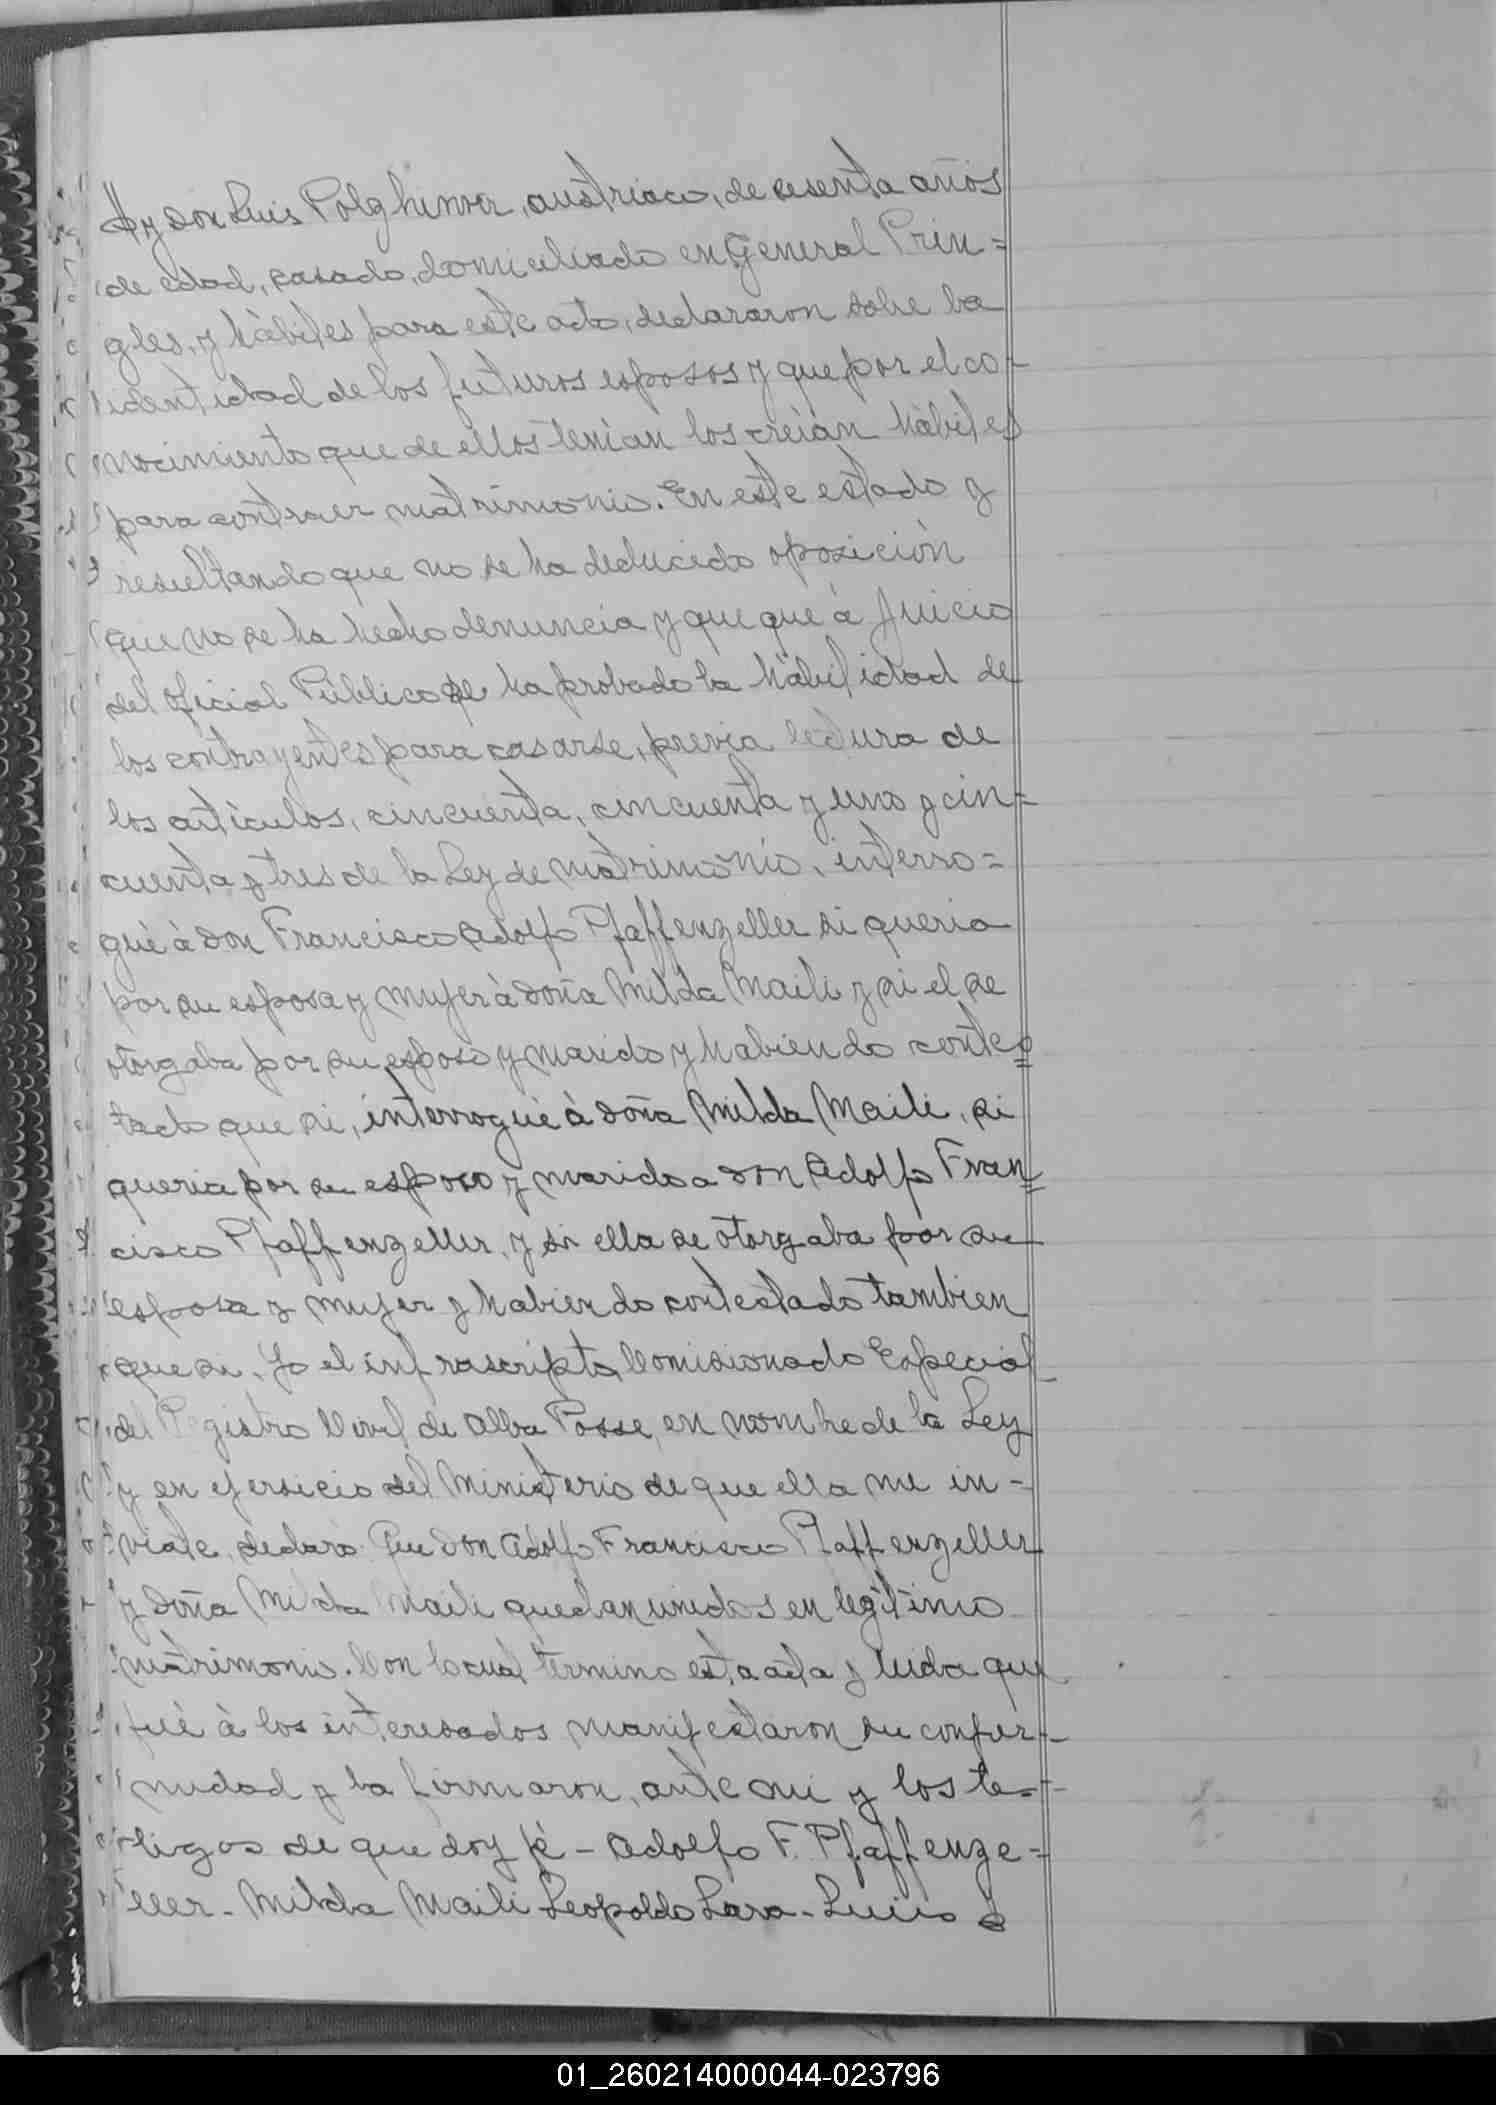 y don Luis Polghinor, austriaco, de sesenta años
de edad, casado, domiciliado en General Prin=
gles, y hàbiles para este acto, declararon sobre la
identidad de los futuros esposos y que por el co-
nocimiento que de ellos tenian los creian hàbiles
para contraer matrimonio. En este estado y
resultando que no se ha deducido oposiciòn
que no se ha hecho denuncia y que que à Juicio
del Oficial Pùblico se ha probado la hàbilidad de
los contrayentes para casarse, previa lectura de
los artìculos, cincuenta, cincuenta y uno y cin-
cuenta y tres de la Ley de matrimonio, interro=
guè à don Francisco Adolfo Pfaffenzeller si queria
por su esposa y mujer à doña Milda Maili y si el se
otorgaba por su esposo y marido y habiendo contes=
tado que si, interroguè à doña Milda Maili, si
queria por su esposo y marido a don Adolfo Fran=
cisco Pfaffenzeller, y si ella se otorgaba por su
esposa y mujer y habiendo contestado tambien
que si. Yo el infrascripto, Comisionado Especial
del Registro Civil de Alba Posse, en nombre de la Ley
y en ejersicio del Ministerio de que ella me in-
viste, declaro: Que don Adolfo Francisco Pfaffenzeller
y doña Milda Maili quedan unidos en legìtimo
matrimonio. Con lo cual termino esta acta y leida que
fuè à los interesados manifestaron su confor-
midad y la firmaron, ante mi y los tes-
tigos de que doy fè - Adolfo F. Pfaffenze=
ller - Milda Maili Leopoldo Lara - Luis
01_260214000044-023796